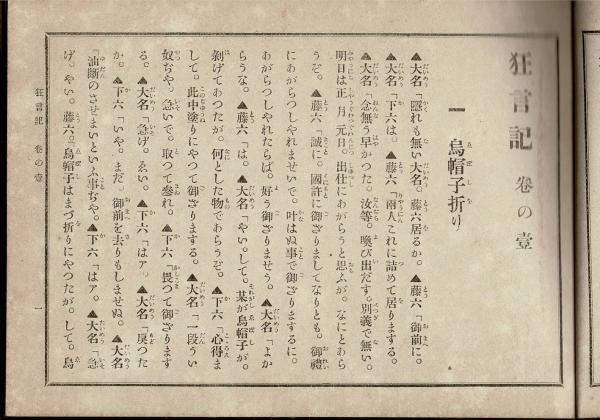 狂言記 卷の壹
一 烏帽子折り
▲大名「隱れも無い大名。藤六居るか。▲藤六「御前に。
▲大名「下六は。▲藤六「兩人これに詰めて居りまする。
▲大名「念無う早かつた。汝等。喚び出だす。別義で無い。
明日は正月元日。出仕にあがらうと思ふが。なにとあら
うぞ。▲藤六「誠に。國許に御ざりましてなりとも。御禮
にあがらつしやれませいで。叶はぬ事で御ざりまするに。
あがらつしやれたらば。好う御ざりませう。▲大名「よか
らうな。▲藤六「は。▲大名「やい。して。某が烏帽子が。
剝げてあつたが。何とした物であらうぞ。▲下六「心得ま
して。此中塗りにやつて御ざりまする。▲大名「一段うい
奴ぢや。急いで。取つて參れ。▲下六「畏まつて御ざります
る。▲大名「急げ。ゑい。▲下六「はァ。▲大名「戾つた
か。▲下六「いや。まだ。御前を去りもしませぬ。▲大名
「油斷のさせまいといふ事ぢや。▲下六「はァ。▲大名「急
げ。やい。藤六。烏帽子はまづ折りにやつたが。して。烏
狂言記 卷の壹
一